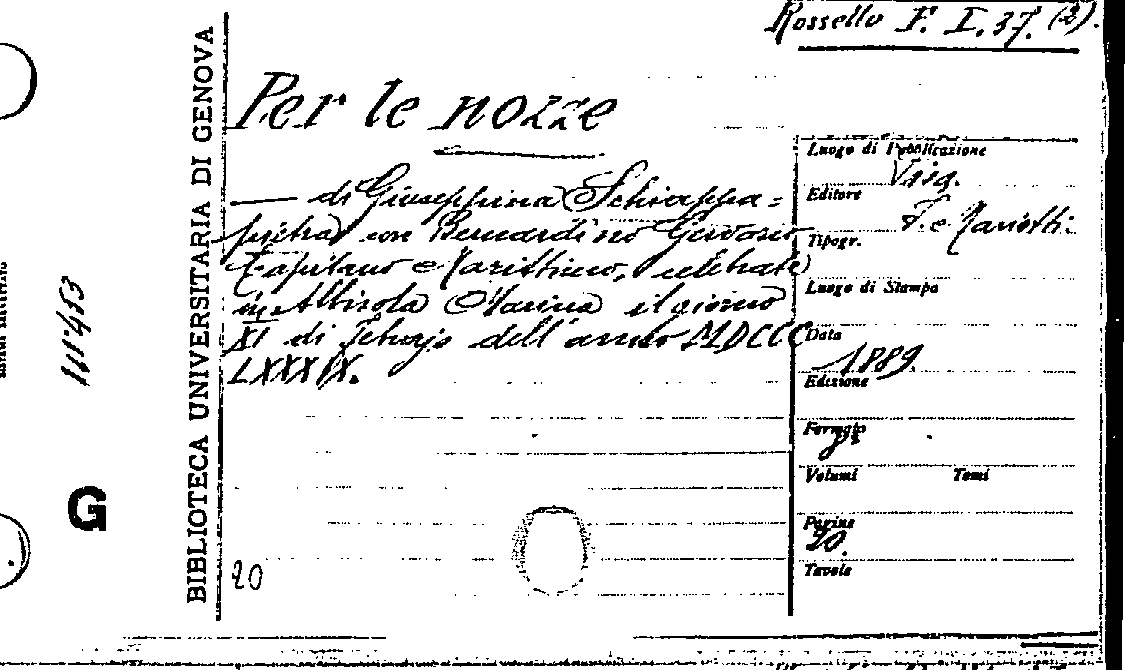 Rossello F. I. 37. (2).
BIBLIOTECA UNIVERSITARIA DI GENOVA
G
Per le nozze
— di Giuseppina Schiappa=
pietra con Bernardino Gervasio
Capitano Marittimo, celebrate
in Albisola Marina il giorno
XI di dell'anno MDCCC
LXXXIX.
20
Luogo di Pubblicazione
Editore
Tipogr.
Luogo di Stampa
Data
1889.
Edizione
Formato
8º
Volumi Tomi
Pagine
20.
Tavole